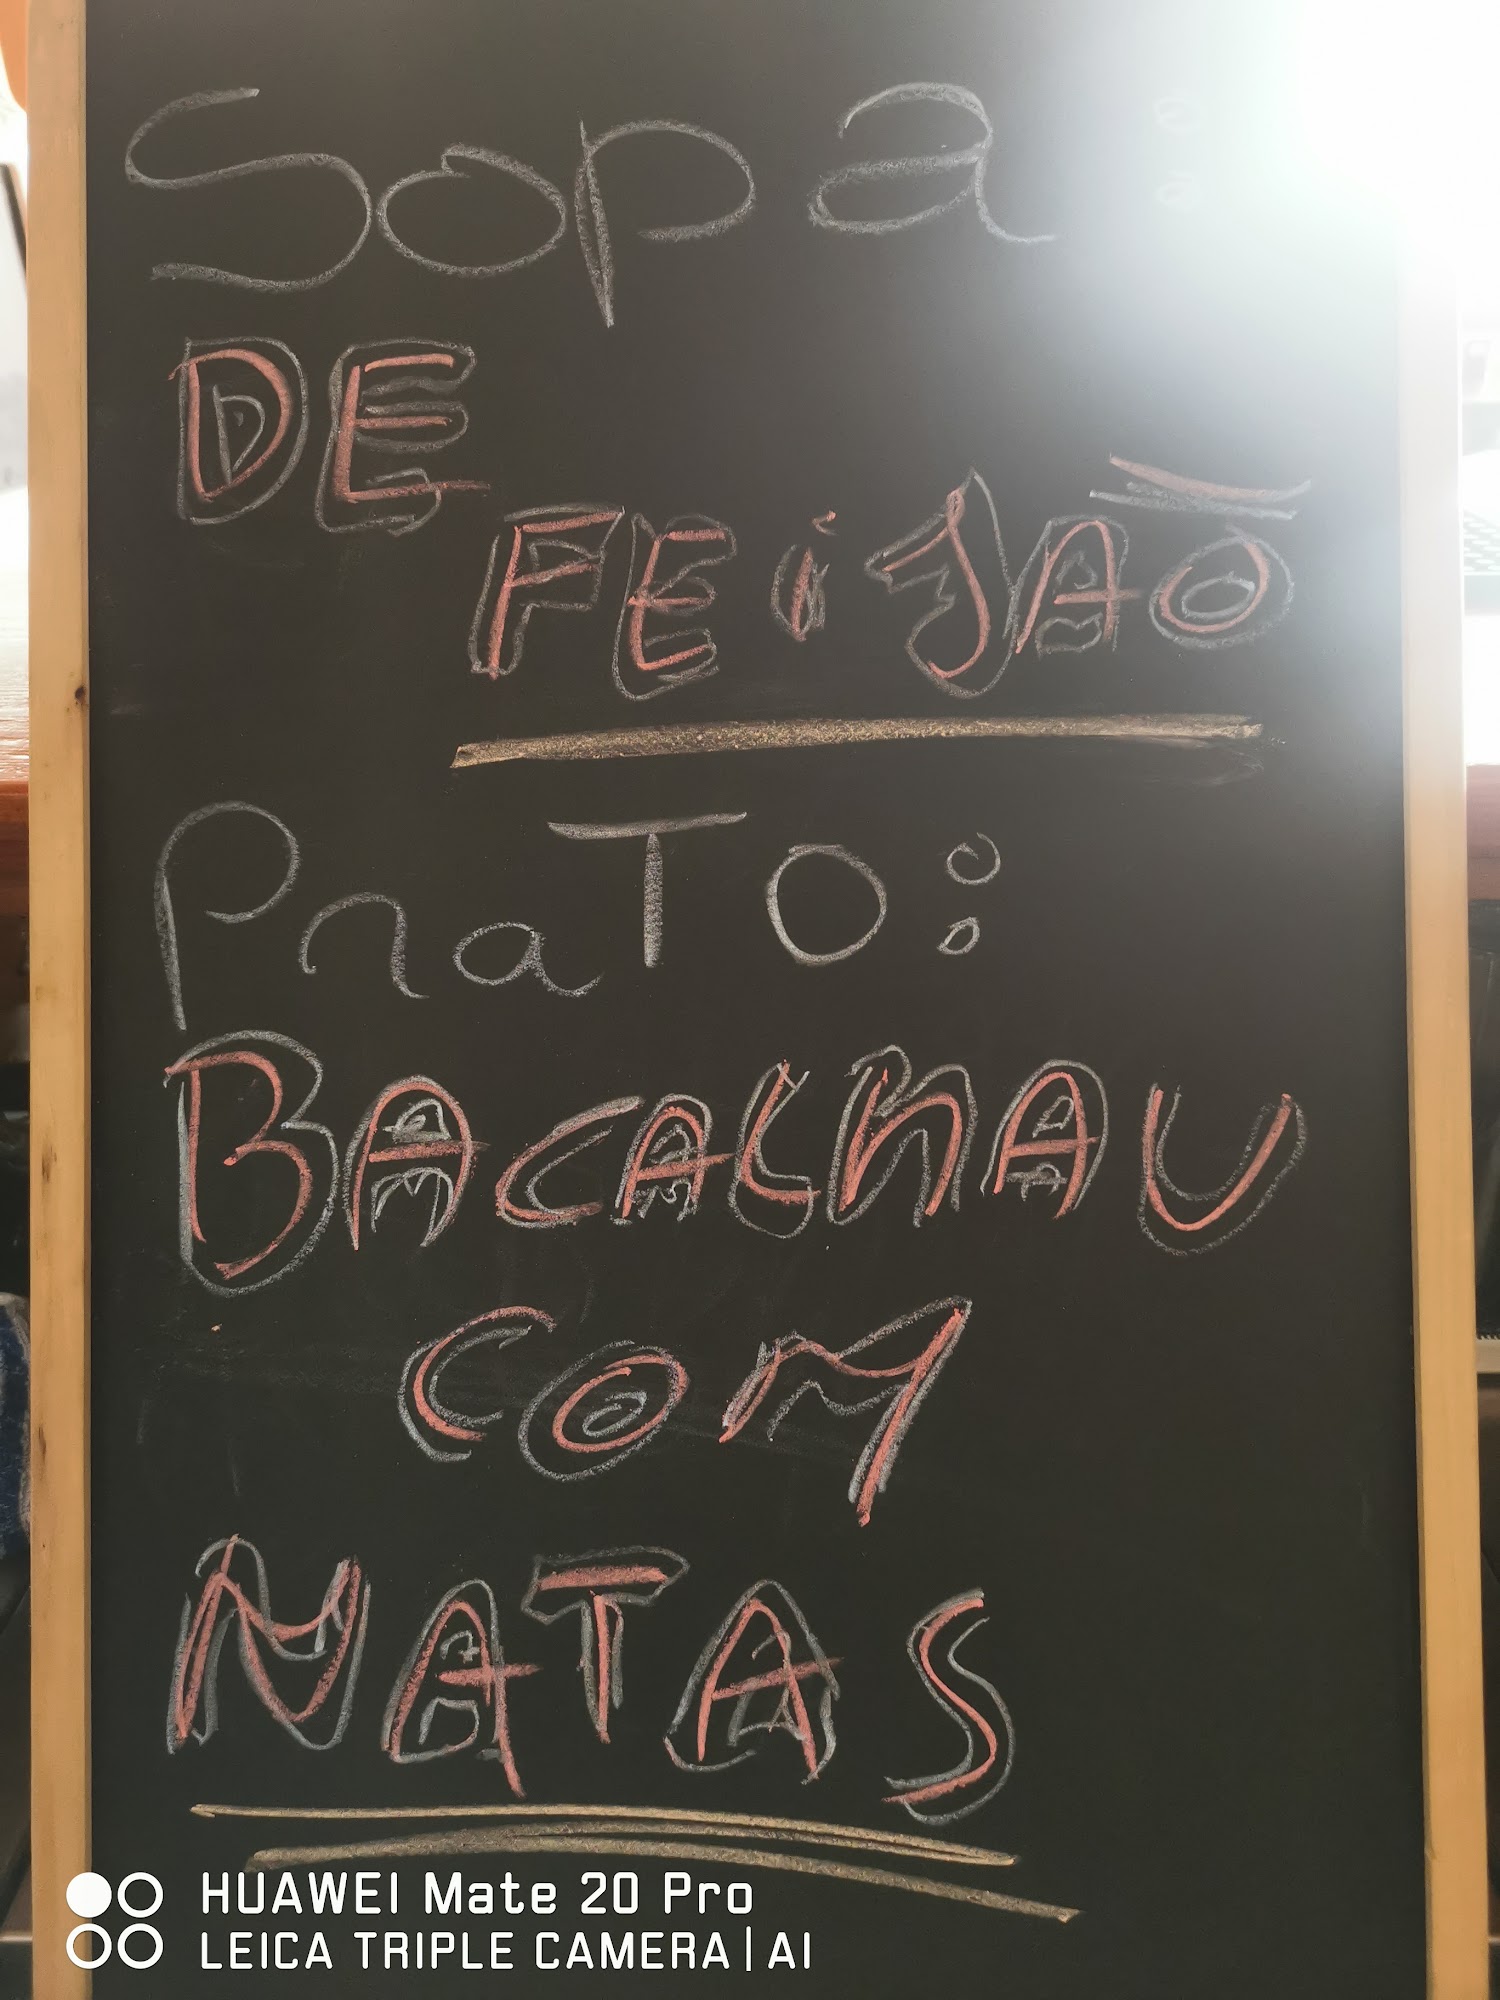 Sopa:
DE
FEiJÃO
PraTO:
BACALhAU
COM
NATAS
HUAWEI Mate 20 Pro
LEICA TRIPLE CAMERA | AI